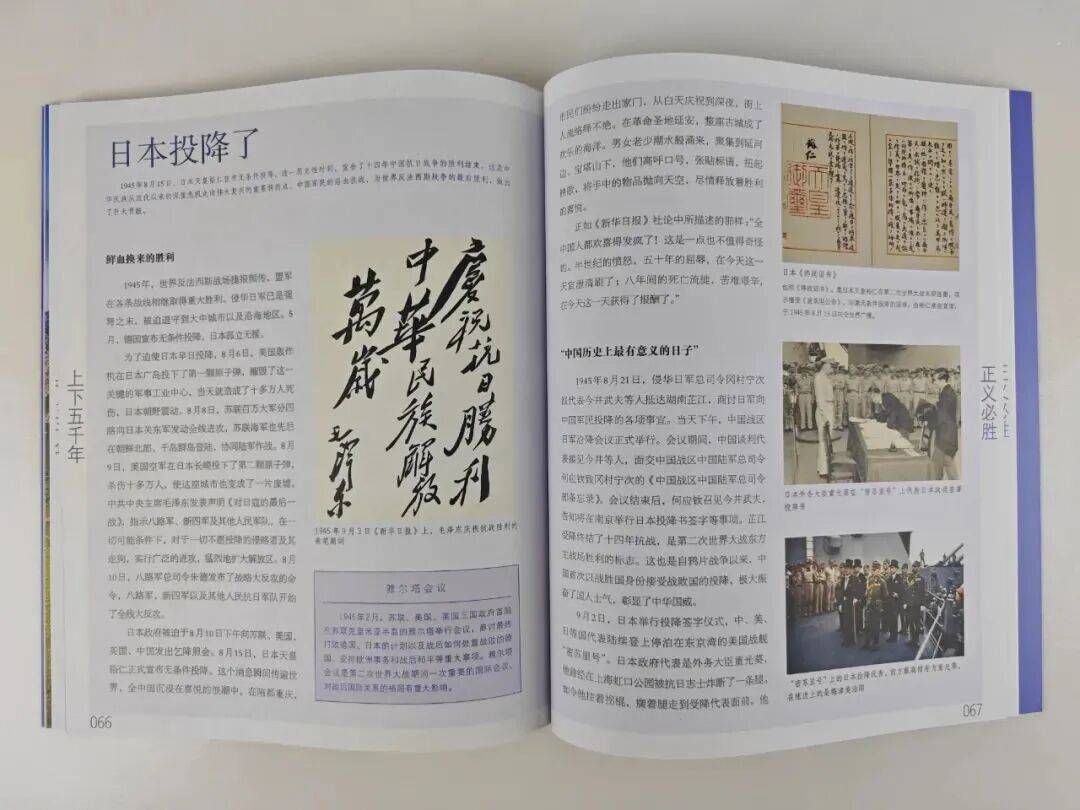 日本投降了
1945年8月15日，日本天皇裕仁宣布无条件投降。这一历史性时刻，宣告了十四年中国抗日战争的胜利结束，这是中
华民族从近代以来的深重危机走向伟大复兴的重要转折点。中国军民的浴血抗战，为世界反法西斯战争的最后胜利，做出
了巨大贡献。
鲜血换来的胜利
1945年，世界反法西斯战场捷报频传，盟军
在各条战线相继取得重大胜利，侵华日军已是强
弩之末，被迫退守到大中城市以及沿海地区。5
月，德国宣布无条件投降，日本孤立无援。
为了迫使日本早日投降，8月6日，美国轰炸
机在日本广岛投下了第一颗原子弹，摧毁了这一
关键的军事工业中心，当天就造成了十多万人死
伤，日本朝野震动。8月8日，苏联百万大军分四
路向日本关东军发动全线进攻，苏联海军也先后
在朝鲜北部、千岛群岛登陆，协同陆军作战。8月
9日，美国空军在日本长崎投下了第二颗原子弹，
杀伤十多万人，使这座城市也变成了一片废墟。
中共中央主席毛泽东发表声明《对日寇的最后一
战》，指示八路军、新四军及其他人民军队，在一
切可能条件下，对于一切不愿投降的侵略者及其
走狗，实行广泛的进攻，猛烈地扩大解放区。8月
10日，八路军总司令朱德发布了战略大反攻的命
令，八路军、新四军以及其他人民抗日军队开始
了全线大反攻。
日本政府被迫于8月10日下午向苏联、美国、
英国、中国发出乞降照会。8月15日，日本天皇
裕仁正式宣布无条件投降。这个消息瞬间传遍世
界，全中国沉浸在喜悦的浪潮中。在陪都重庆，
慶祝抗日勝利
中華民族解放
萬歲
毛澤东
1945年9月3日《新华日报》上，毛泽东庆祝抗战胜利的
亲笔题词
雅尔塔会议
1945年2月，苏联、美国、英国三国政府首脑
在苏联克里米亚半岛的雅尔塔举行会议，商讨最终
打败德国、日本的计划以及战后如何处置战败的德
国、安排欧洲事务和战后和平等重大事项。雅尔塔
会议是第二次世界大战期间一次重要的国际会议，
对战后国际关系的格局有重大影响。
上下五千年
066
市民们纷纷走出家门，从白天庆祝到深夜，街上
人流络绎不绝。在革命圣地延安，整座古城成了
欢乐的海洋。男女老少潮水般涌来，聚集到延河
边、宝塔山下，他们高呼口号，张贴标语，扭起
秧歌，将手中的物品抛向天空，尽情释放着胜利
的喜悦。
正如《新华日报》社论中所描述的那样：“全
中国人都欢喜得发疯了！这是一点也不值得奇怪
的。半世纪的愤怒，五十年的屈辱，在今天这一
天宣泄清刷了；八年间的死亡流徙，苦难艰辛，
在今天这一天获得了报酬了。”
“中国历史上最有意义的日子”
1945年8月21日，侵华日军总司令冈村宁次
派代表今井武夫等人抵达湖南芷江，商讨日军向
中国军民投降的各项事宜。当天下午，中国战区
日军洽降会议正式举行。会议期间，中国谈判代
表接见今井等人，面交中国战区中国陆军总司令
何应钦致冈村宁次的《中国战区中国陆军总司令
部备忘录》。会议结束后，何应钦召见今井武夫，
告知将在南京举行日本投降书签字等事项。芷江
受降终结了十四年抗战，是第二次世界大战东方
主战场胜利的标志。这也是自鸦片战争以来，中
国首次以战胜国身份接受战败国的投降，极大振
奋了国人士气，彰显了中华国威。
9月2日，日本举行投降签字仪式，中、美、
日等国代表陆续登上停泊在东京湾的美国战舰
“密苏里号”。日本政府代表是外务大臣重光葵，
他曾经在上海虹口公园被抗日志士炸断了一条腿，
如今他拄着拐棍，瘸着腿走到受降代表面前。他
裕仁
日本《终战诏书》
于1945年8月15日向全世界广播。
日本外务大臣重光葵在“密苏里号”上代表日本政府签署
投降书
“密苏里号”上的日本投降代表，前方戴高帽者为重光葵，
在他边上的是梅津美治郎
正义必胜
067